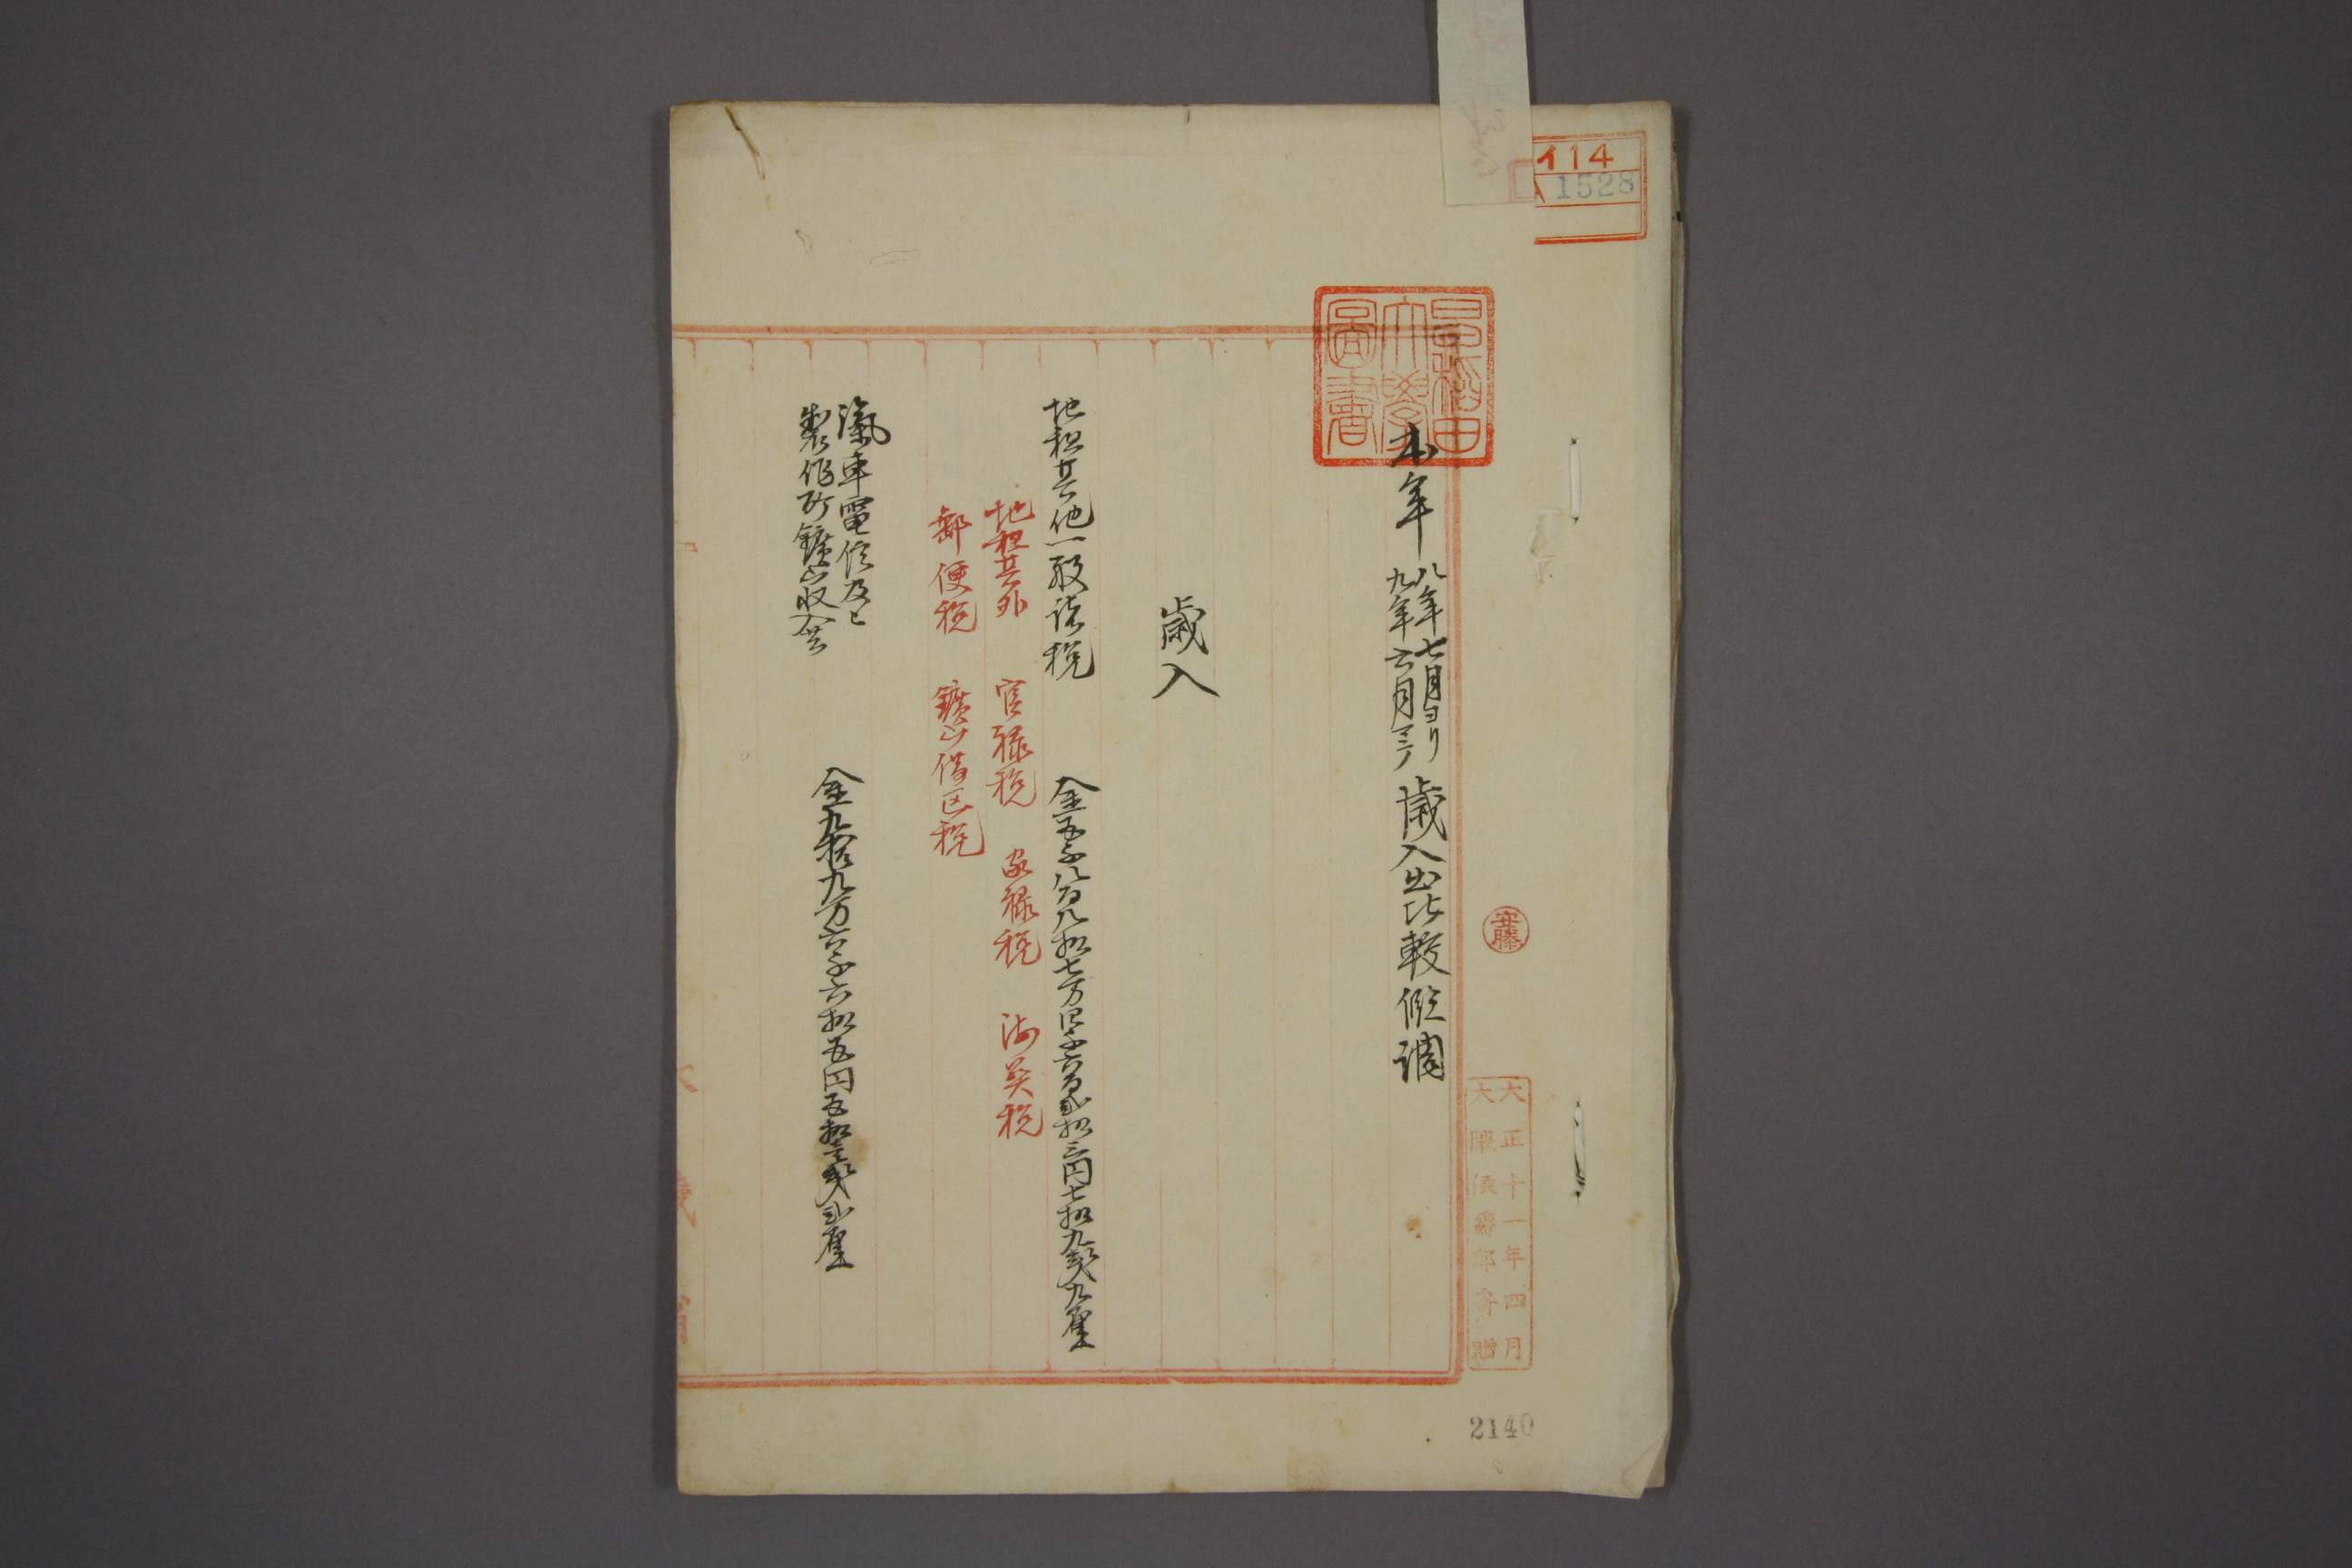 イ14
A1528
早稲田大學圖書
安藤
大正十一年四月
大隈侯爵邸寄贈
2140
本年 八年七月ヨリ 九年六月ミテ 歳入出比較假調
歳入
地租其他一般諸税 金五千八百八拾七万四千六百弐拾三円七拾九銭九厘
地租其外 官禄税 家禄税 海関税
郵便税 鑛山借区税
滊車電信及ヒ
製作所鑛山収入共
金九拾九万六千六拾五円五拾三銭弐厘